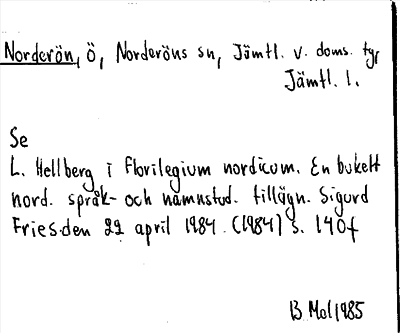 Norderön, ö, Norderöns sn, Jämtl. v. doms. tg,
Jämtl. l.
Se
L. Hellberg i Florilegium nordicum. En bukett
nord. språk- och namnstud. tillägn. Sigurd
Fries den 22 april 1984. (1984) s. 140f
B Mol 1985